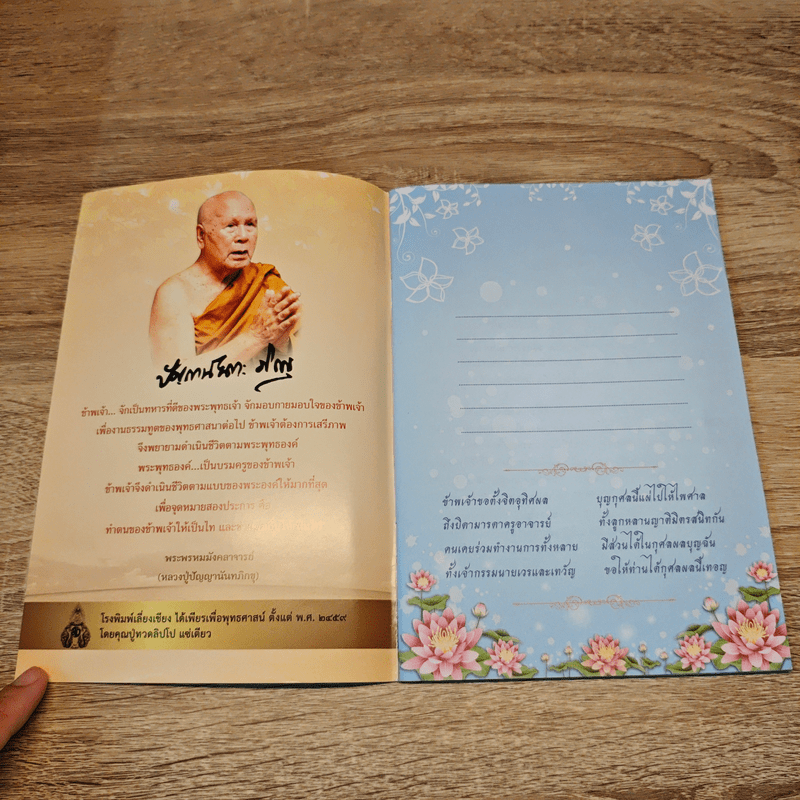 ปัญญานันทะ ภิกขุ
ข้าพเจ้า... จักเป็นทหารที่ดีของพระพุทธเจ้า จักมอบกายมอบใจของข้าพเจ้า
เพื่องานธรรมทูตของพุทธศาสนาต่อไป ข้าพเจ้าต้องการเสรีภาพ
จึงพยายามดำเนินชีวิตตามพระพุทธองค์
พระพุทธองค์...เป็นบรมครูของข้าพเจ้า
ข้าพเจ้าจึงดำเนินชีวิตตามแบบของพระองค์ให้มากที่สุด
เพื่อจุดหมายสองประการ คือ
ทำตนของข้าพเจ้าให้เป็นไท
พระพรหมมังคลาจารย์
(หลวงปู่ปัญญานันทภิกขุ)
โรงพิมพ์เลี่ยงเชียง ได้เพียรเพื่อพุทธศาสน์ ตั้งแต่ พ.ศ. ๒๔๕๙
โดยคุณปู่ทวดลิปโป แซ่เตียว
ข้าพเจ้าขอตั้งจิตอุทิศผล บุญกุศลนี้แผ่ไปให้ไพศาล
ถึงบิดามารดาครูอาจารย์ ทั้งลูกหลานญาติมิตรสนิทกัน
คนเคยร่วมทำงานการทั้งหลาย มีส่วนได้ในกุศลผลบุญฉัน
ทั้งเจ้ากรรมนายเวรและเทวัญ ขอให้ท่านได้กุศลผลนี้เทอญ